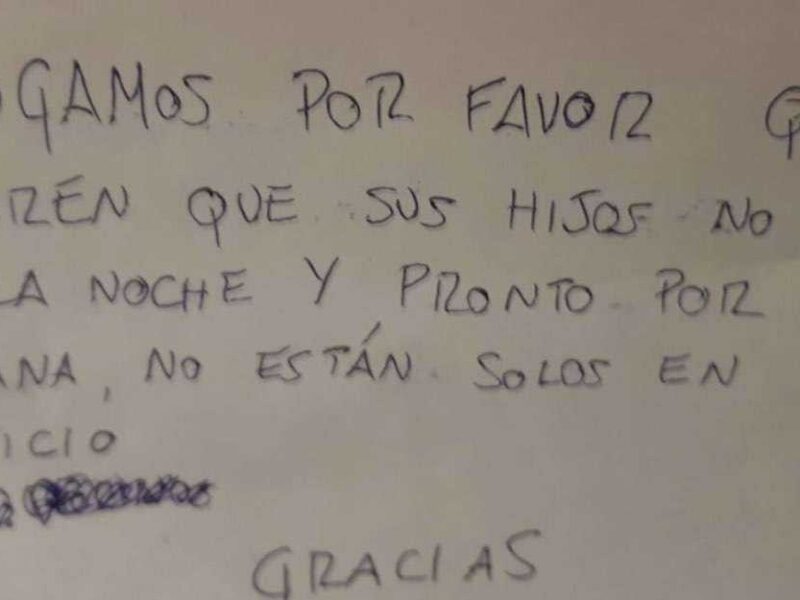 OGAMOS POR FAVOR Q
REN QUE SUS HIJOS NO
LA NOCHE Y PRONTO POR
ANA, NO ESTÁN SOLOS EN
ICIO
GRACIAS